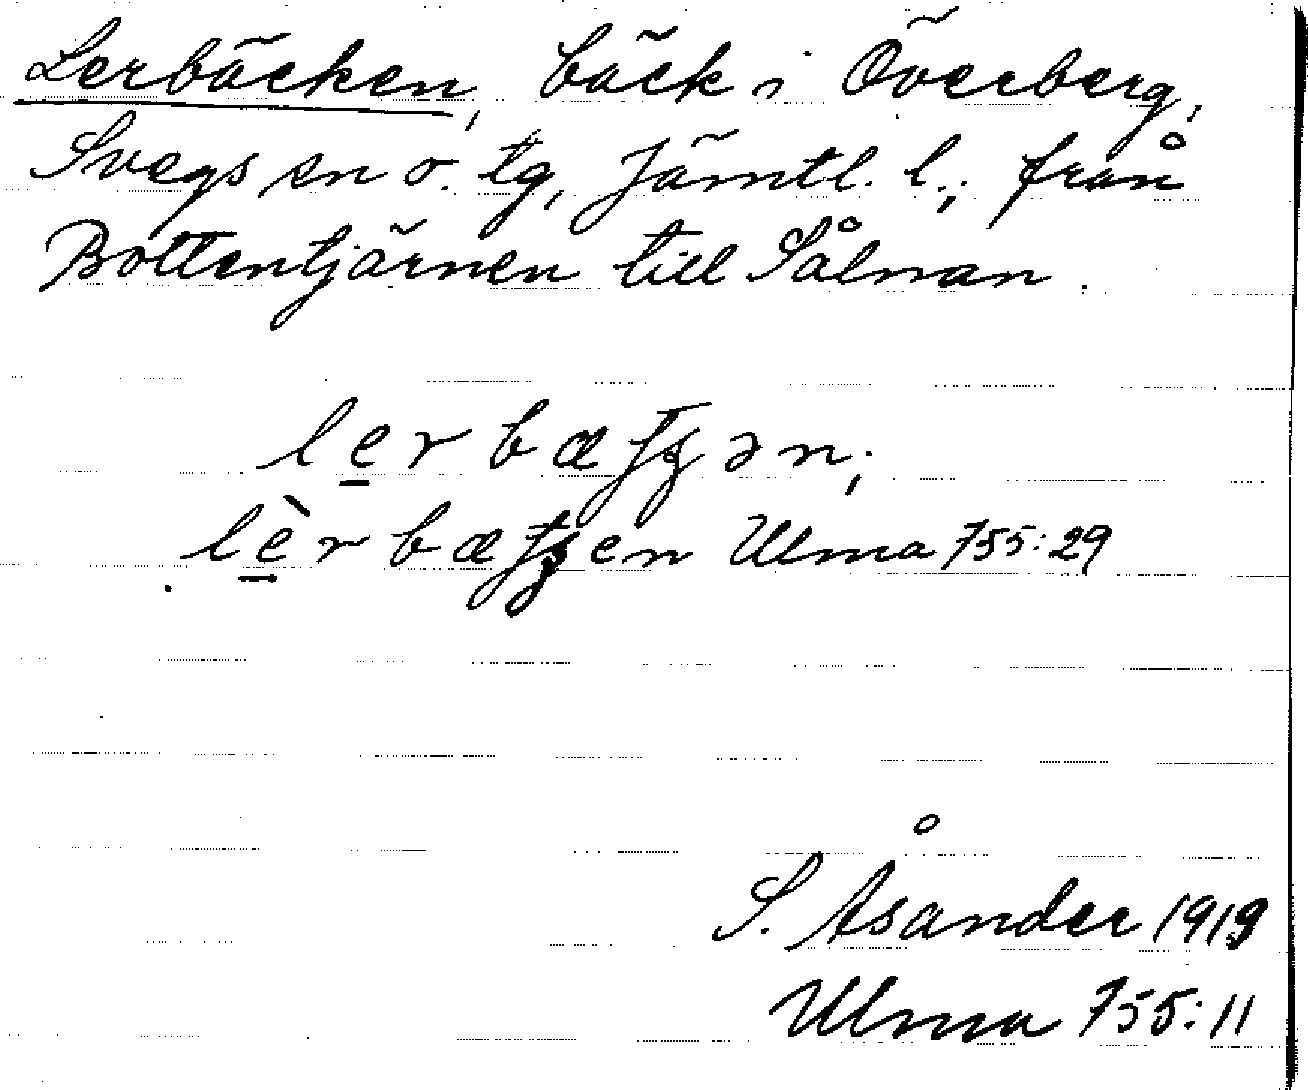 Lerbäcken, bäck i Överberg,
Svegs sn o. tg, Jämtl. l.; från
Bottentjärnen till Sålman.
lerbæʃʒən;
lèrbæʃʒen Ulma 755:29
S. Åsander 1919
Ulma 755:11